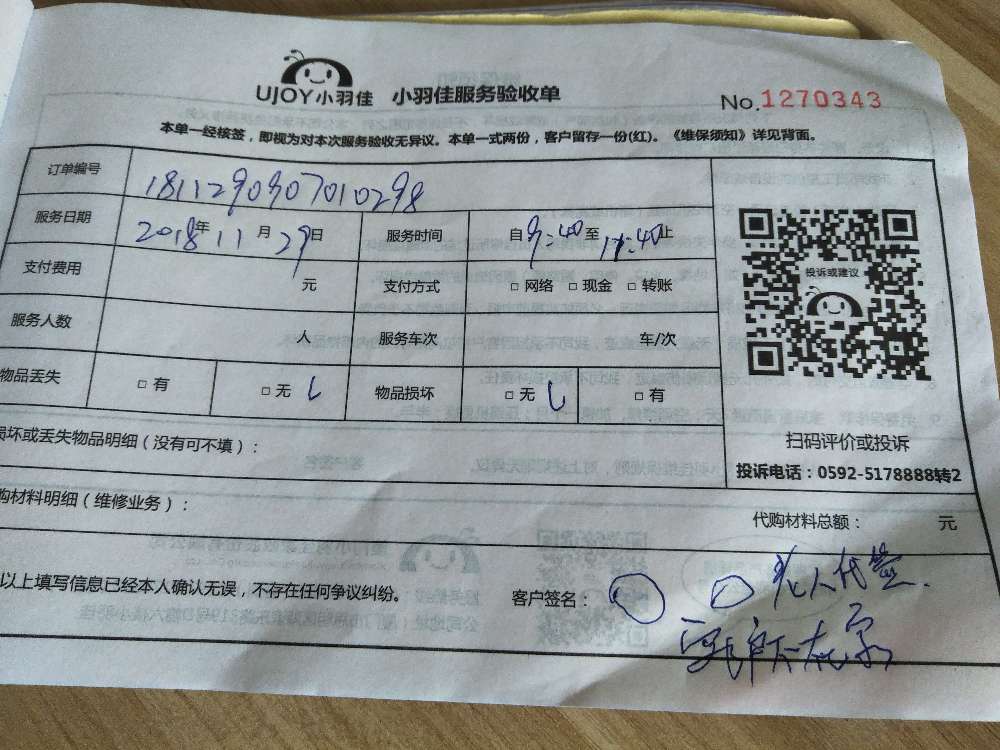 UJOY小羽佳 小羽佳服务验收单
No.1270343
本单一经核签，即视为对本次服务验收无异议。本单一式两份，客户留存一份(红)。《维保须知》详见背面。
订单编号
服务日期 2018年11月29日 服务时间 自9:40至 止
支付费用 元 支付方式 □ 网络 □ 现金 □ 转账
服务人数 人 服务车次 车/次
物品丢失 □ 有 □ 无 物品损坏 □ 无 □ 有
投诉或建议
扫码评价或投诉
投诉电话：0592-5178888转2
损坏或丢失物品明细（没有可不填）：
购材料明细（维修业务）：
代购材料总额： 元
以上填写信息已经本人确认无误，不存在任何争议纠纷。 客户签名：
人代签.